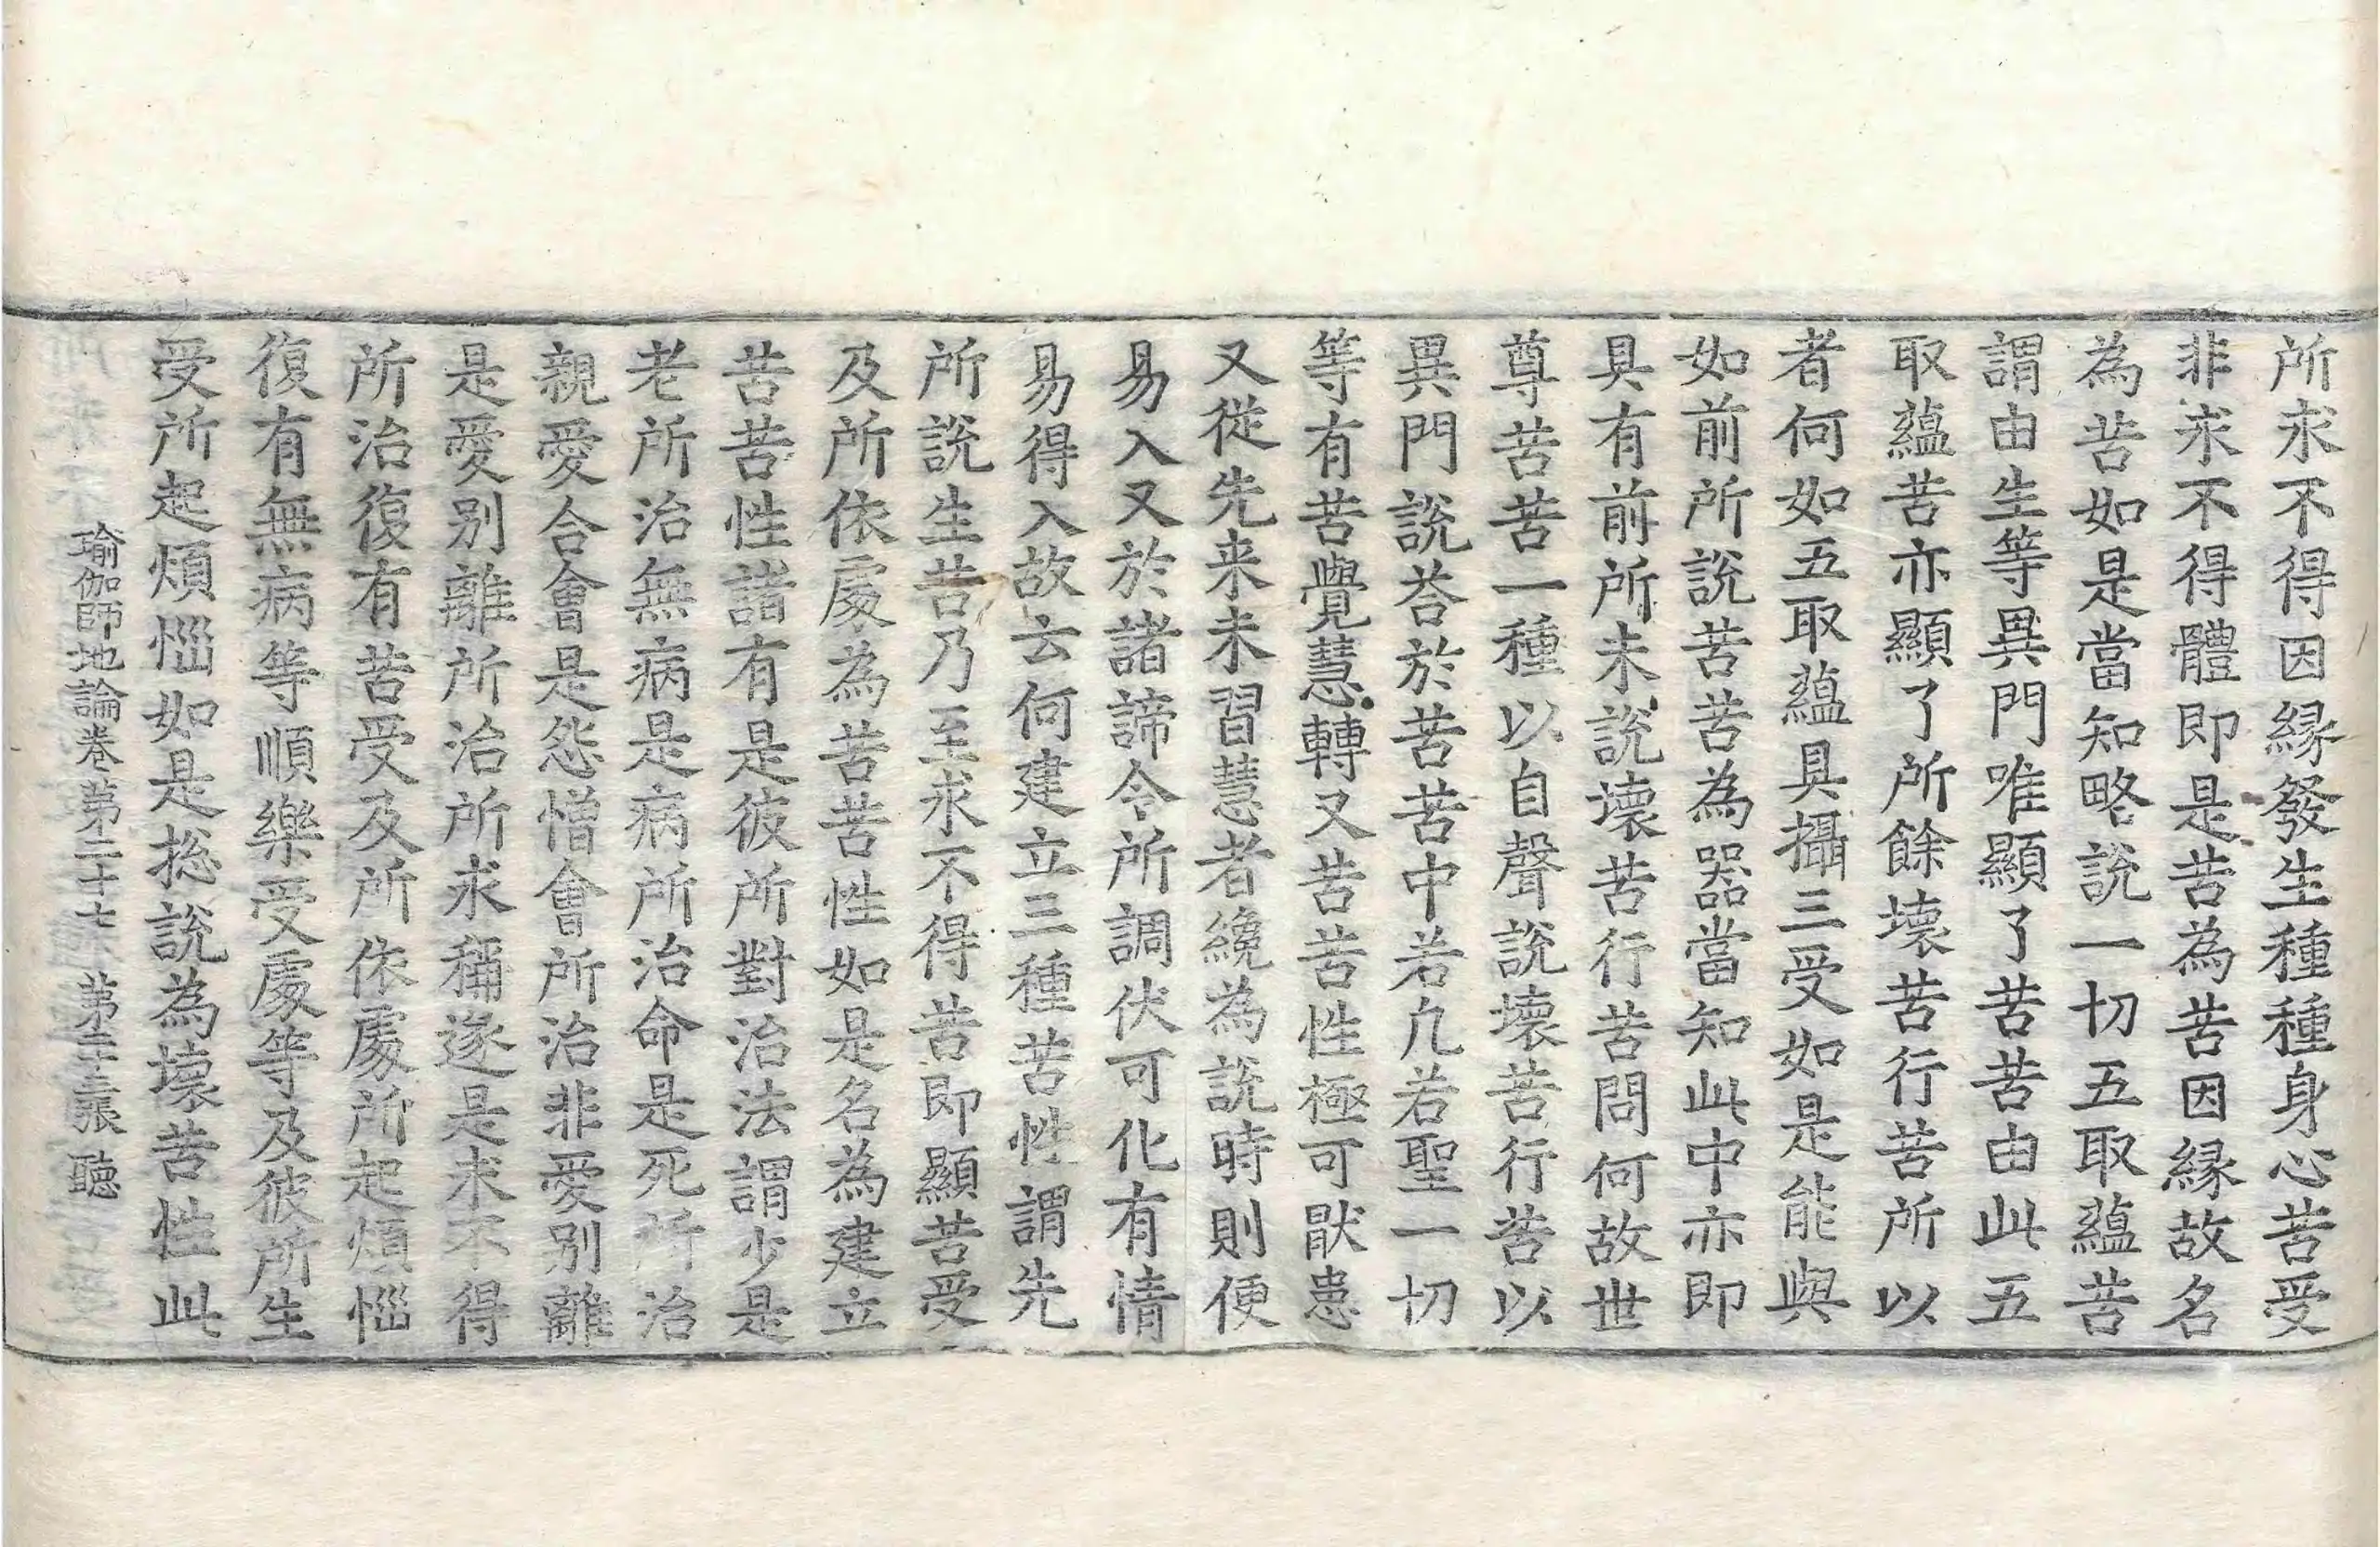 所求不得因縁發生種種身心苦受
非求不得體即是苦為苦因縁故名
為苦如是當知略說一切五取蘊苦
謂由生等異門唯顯了苦苦由此五
取蘊苦亦顯了所餘壞苦行苦所以
者何如五取蘊具攝三受如是能與
如前所說苦苦為器當知此中亦即
具有前所未說壞苦行苦問何故世
尊苦苦一種以自聲說壞苦行苦以
異門說荅於苦苦中若凢若聖一切
等有苦覺慧轉又苦苦性極可猒患
又從先来未習慧者纔為說時則便
易入又於諸諦令所調伏可化有情
易得入故云何建立三種苦性謂先
所說生苦乃至求不得苦即顯苦受
及所依處為苦苦性如是名為建立
苦苦性諸有是彼所對治法謂少是
老所治無病是病所治命是死所治
親愛合會是怨憎會所治非愛別離
是愛別離所治所求稱遂是求不得
所治復有苦受及所依處所起煩惱
復有無病等順樂受處等及彼所生
受所起煩惱如是捴說為壞苦性此
瑜伽師地論卷第二十七 第二十三張 聽